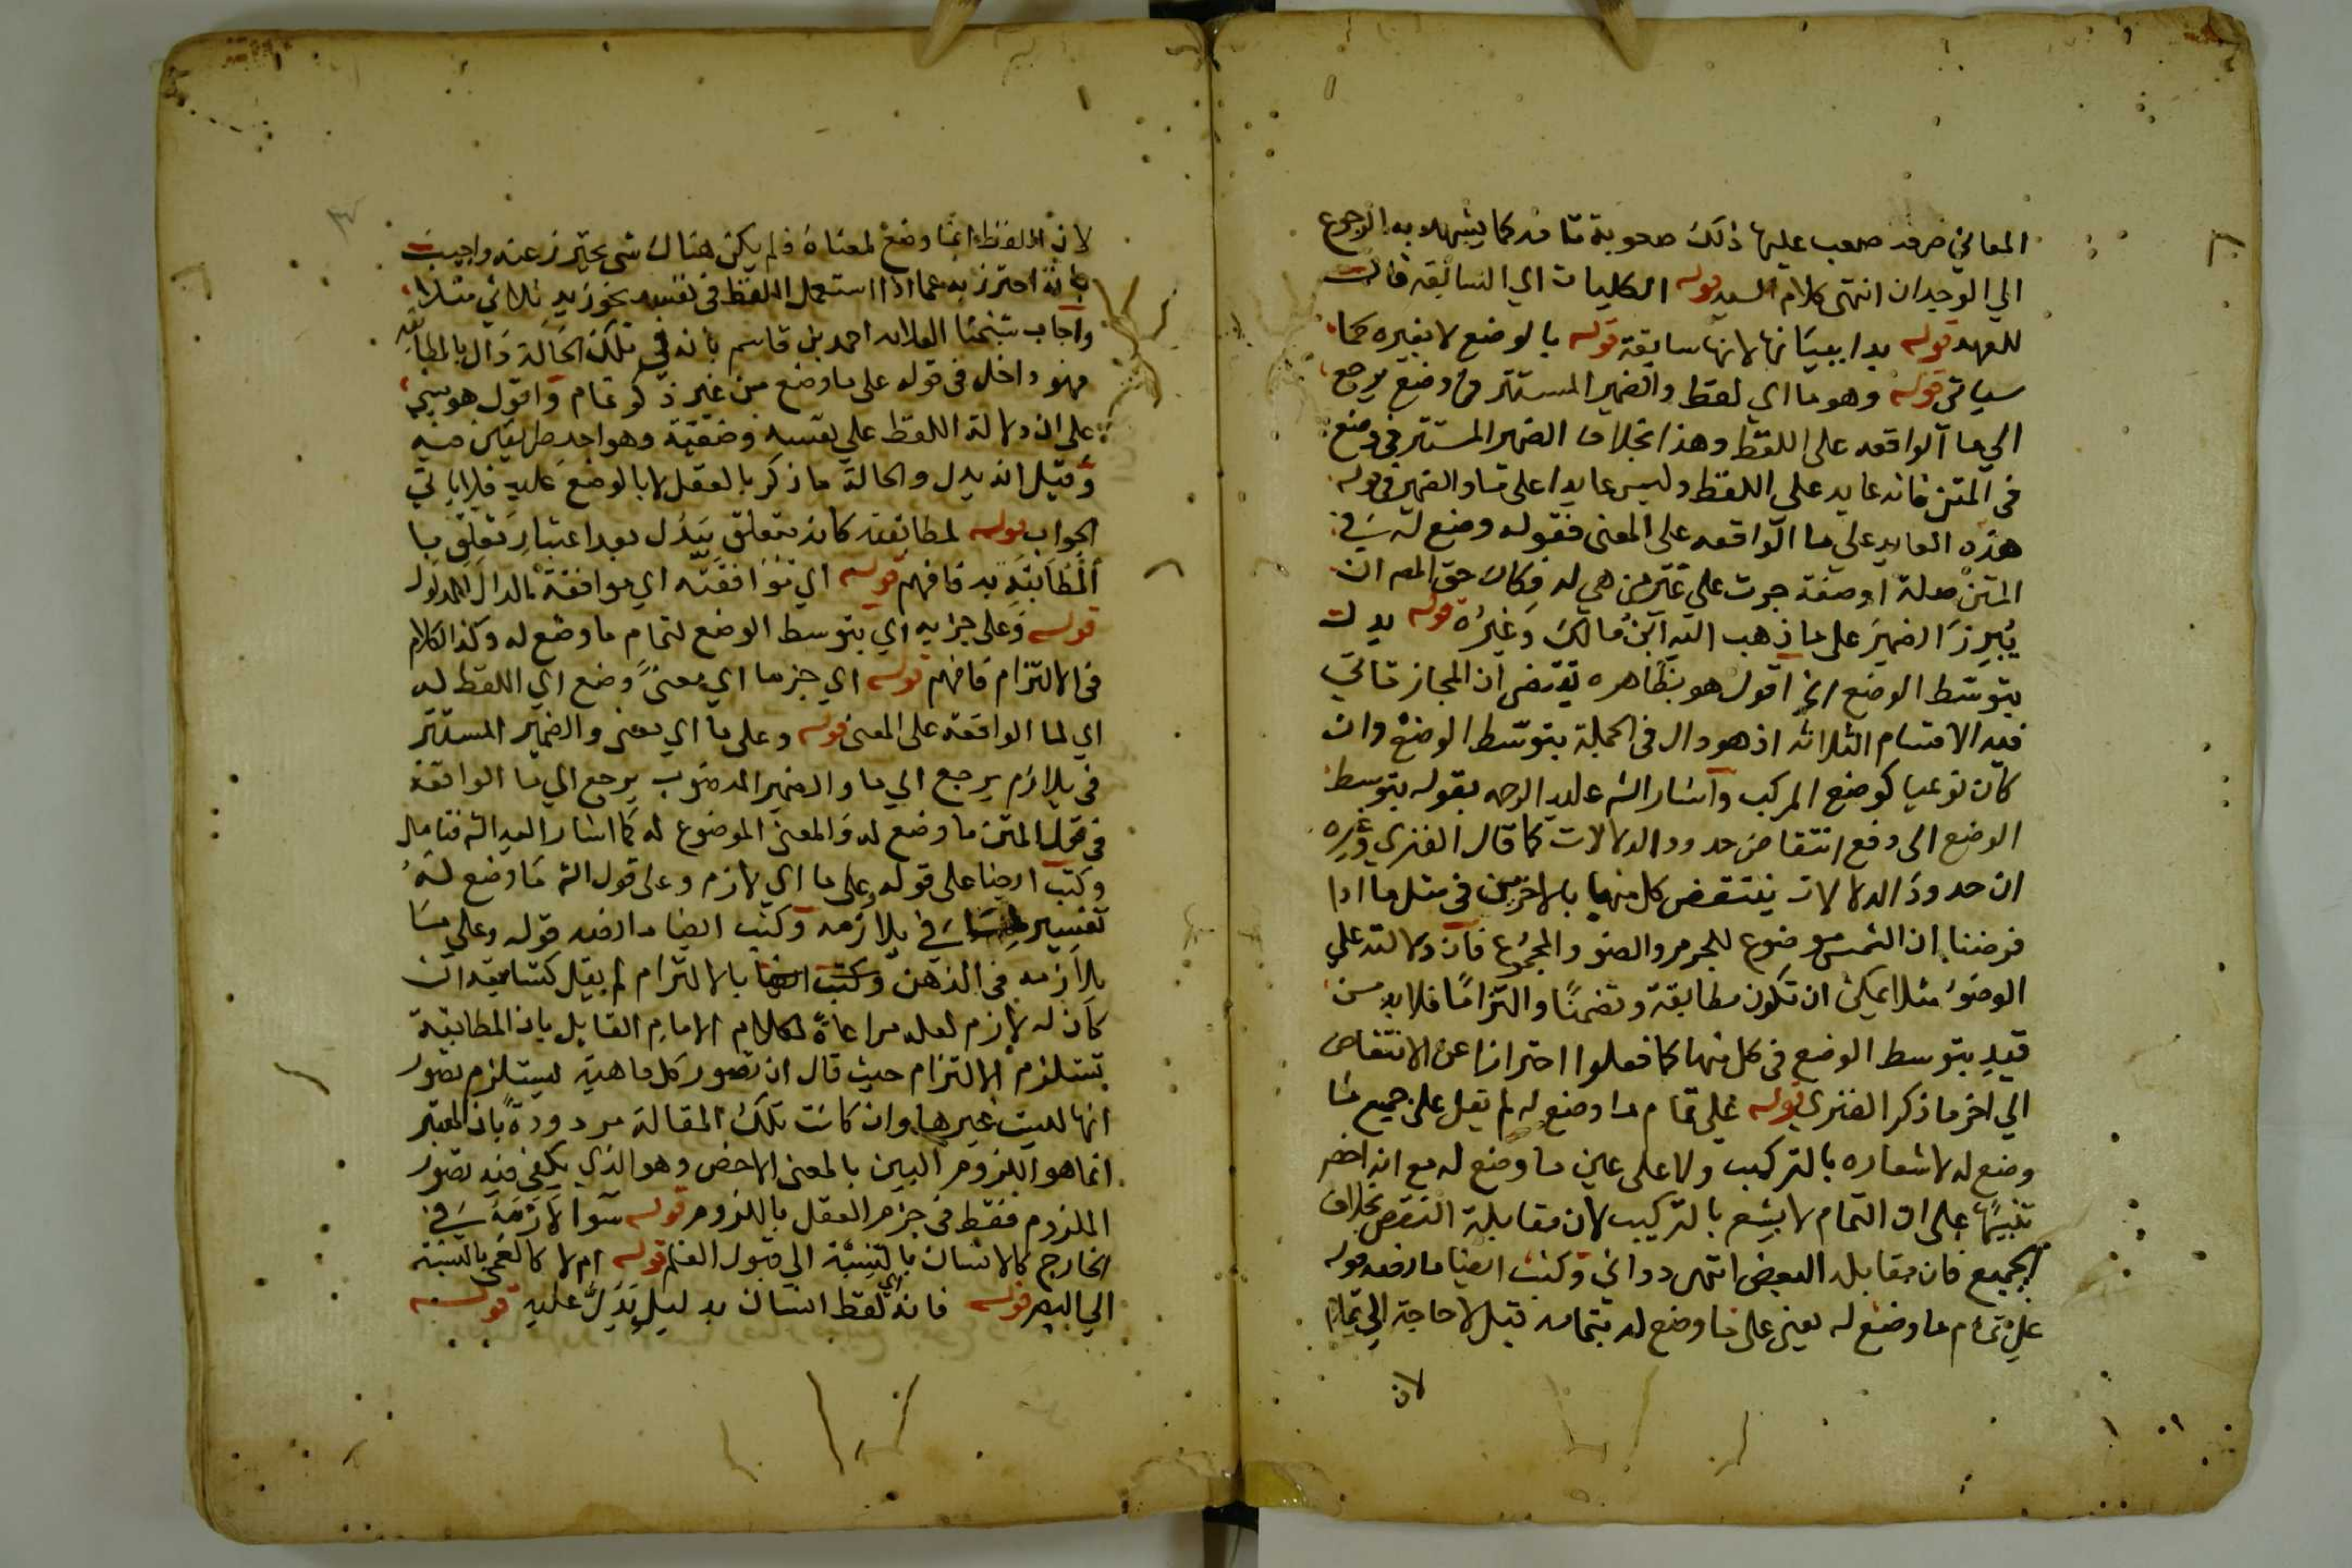 المعاني صرفه صعب عليها ذلك صعوبة تامة كما يشهد به الرجوع
الي الوجدان انتهى كلام السيد قوله الكليات اي السابقة فال
للعهد قوله بدا ببيانها لانها سابقة قوله بالوضع لا بغيره كما
سياتي قوله وهو ما اي لفظ والضمير المستتر في وضع يرجع
الي ما الواقعه على اللفظ وهذا بخلاف الضمير المستتر في وضع
في المتن فانه عايد علي اللفظ وليس عايدا على ما والضمير في قوله
هذه العايد علي ما الواقعه على المعنى فقوله وضع له في
المتن صلة او صفة جرت على غير من هي له فكان حق المص ان
يبرز الضمير على ما ذهب اليه ابن مالك وغيره قوله يدل
بتوسط الوضع الخ اقول هو بظاهره يقتضي ان المجاز تاتي
فيه الاقسام الثلاثه اذ هو دال في الجملة بتوسط الوضع وان
كان نوعيا كوضع المركب واشار الش عليه الرحمه بقوله بتوسط
الوضع الى دفع انتقاض حدود الدلالات كما قال الفنري وغيره
ان حدود الدلالات ينتقض كل منها بالاخرين في مثل ما اذا
فرضنا ان الشمس موضوع للجرم والضو والمجموع فان دلالته علي
الوضوء مثلا يمكن ان تكون مطابقة وتضمنا والتزاما فلا بد من
قيد بتوسط الوضع في كل منها كما فعلوا احترازا عن الانتقاض
الي اخر ما ذكر الفنري قوله على تمام ما وضع له لم يقل على جميع ما
وضع له لاشعاره بالتركيب ولا على عين ما وضع له مع انه اخصر
تنبيها على ان التمام لا يشعر بالتركيب لان مقابلة النقص بخلاف
الجميع فان مقابله البعض انتهى دواني وكتب ايضا ما نصه قوله
على تمام ما وضع له يعني على ما وضع له بتمامه قيل لا حاجة الي تمام
لان
لان اللفظ انما وضع لمعناه فلم يكن هناك شي يحترز عنه واجيب
بانه احترز به عما اذا استعمل اللفظ في نفسه نحو زيد ثلاثي مثلا
واجاب شيخنا العلامه احمد بن قاسم بانه في تلك الحالة دال بالمطابقة
فهو داخل في قوله على ما وضع من غير ذكر تمام واقول هو مبني
على ان دلالة اللفظ علي نفسه وضعية وهو احد طريقين فيه
وقيل انه يدل والحالة ما ذكر بالعقل لا بالوضع عليه فلا ياتي
الجواب قوله لمطابقته كانه متعلق بيدل بعد اعتبار تعلق با
المطابقة به فافهم قوله اي توافقه اي موافقة الدال المدلول
قوله وعلى جزايه اي بتوسط الوضع لتمام ما وضع له وكذا الكلام
في الالتزام فافهم قوله اي جز ما اي معنى وضع اي اللفظ له
اي لما الواقعه على المعنى قوله وعلى ما اي معنى والضمير المستتر
في يلازم يرجع الي ما والضمير المنصوب يرجع الي ما الواقعة
في قول المتن ما وضع له والمعنى الموضوع له كما اشار اليه الش فتامل
وكتب ايضا على قوله وعلى ما اي لازم وعلى قول الش ما وضع له
تفسير في يلازمه وكتب ايضا ما نصه قوله وعلى ما
يلازمه في الذهن بالالتزام لم يقل كسابقه ان
كان له لازم لعله مراعاة لكلام الامام القايل بان المطابقة
تستلزم الالتزام حيث قال ان تصور كل ماهية يستلزم تصور
انها ليست غيرها وان كانت تلك المقالة مردودة بان المعتبر
انما هو اللزوم البين بالمعنى الاخص وهو الذي يكفي فيه تصور
الملزوم فقط في جزم العقل باللزوم قوله سوا لازمه في
الخارج كالانسان بالنسبة الى قبول العلم قوله ام لا كالعمى بالنسبة
الي البصر قوله فانه اي لفظ انسان بدليل يدل عليه قوله